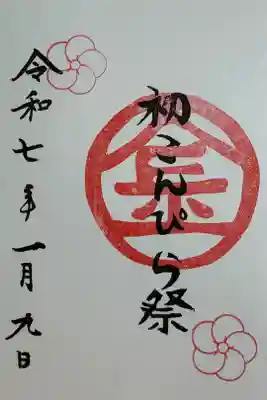 初こんぴら祭
令和七年一月九日
金